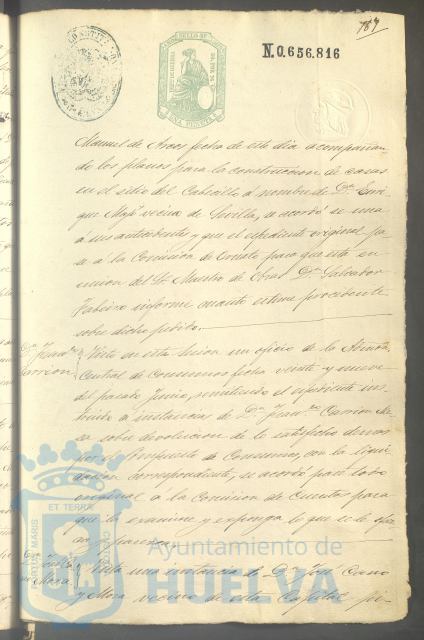 189
SELLO 9º
UNA PESETA
N.0.656.816
Manuel de Arcos fecho de este dia acompañan
do los planos para la construccion de casas
en el sitio del Cabecillo á nombre de Dn Enri
que vecina de Sevilla, se acordó se una
á sus antecedentes y que el espediente original pa
se á la Comision de Ornato para que esta en
union del Sr Maestro de Obras Dn Salvador
informe cuanto estime procedente
sobre dicho pedido.
Dn Franco
Carrion
Visto en esta Sesion un oficio de la Admon
Central de Consumos fecho veinte y nueve
del pasado Junio, remitiendo el espediente ins
truido á instancia de Dn Franco Carrion
sobre devolucion de lo satisfecho demas
por el Impuesto de Consumos, con la liqui
dacion correspondiente, se acordó pase todo
original á la Comision de Cuentas para
que la examine y exponga lo que se le ofrez
ca y parezca.
Dn José Cano
y Mora
Vista una instancia de Dn José Cano
y Mora vecino de esta Capital pi
PORTUS MARIS
ET TERRÆ
CUSTODIA
Ayuntamiento de
HUELVA